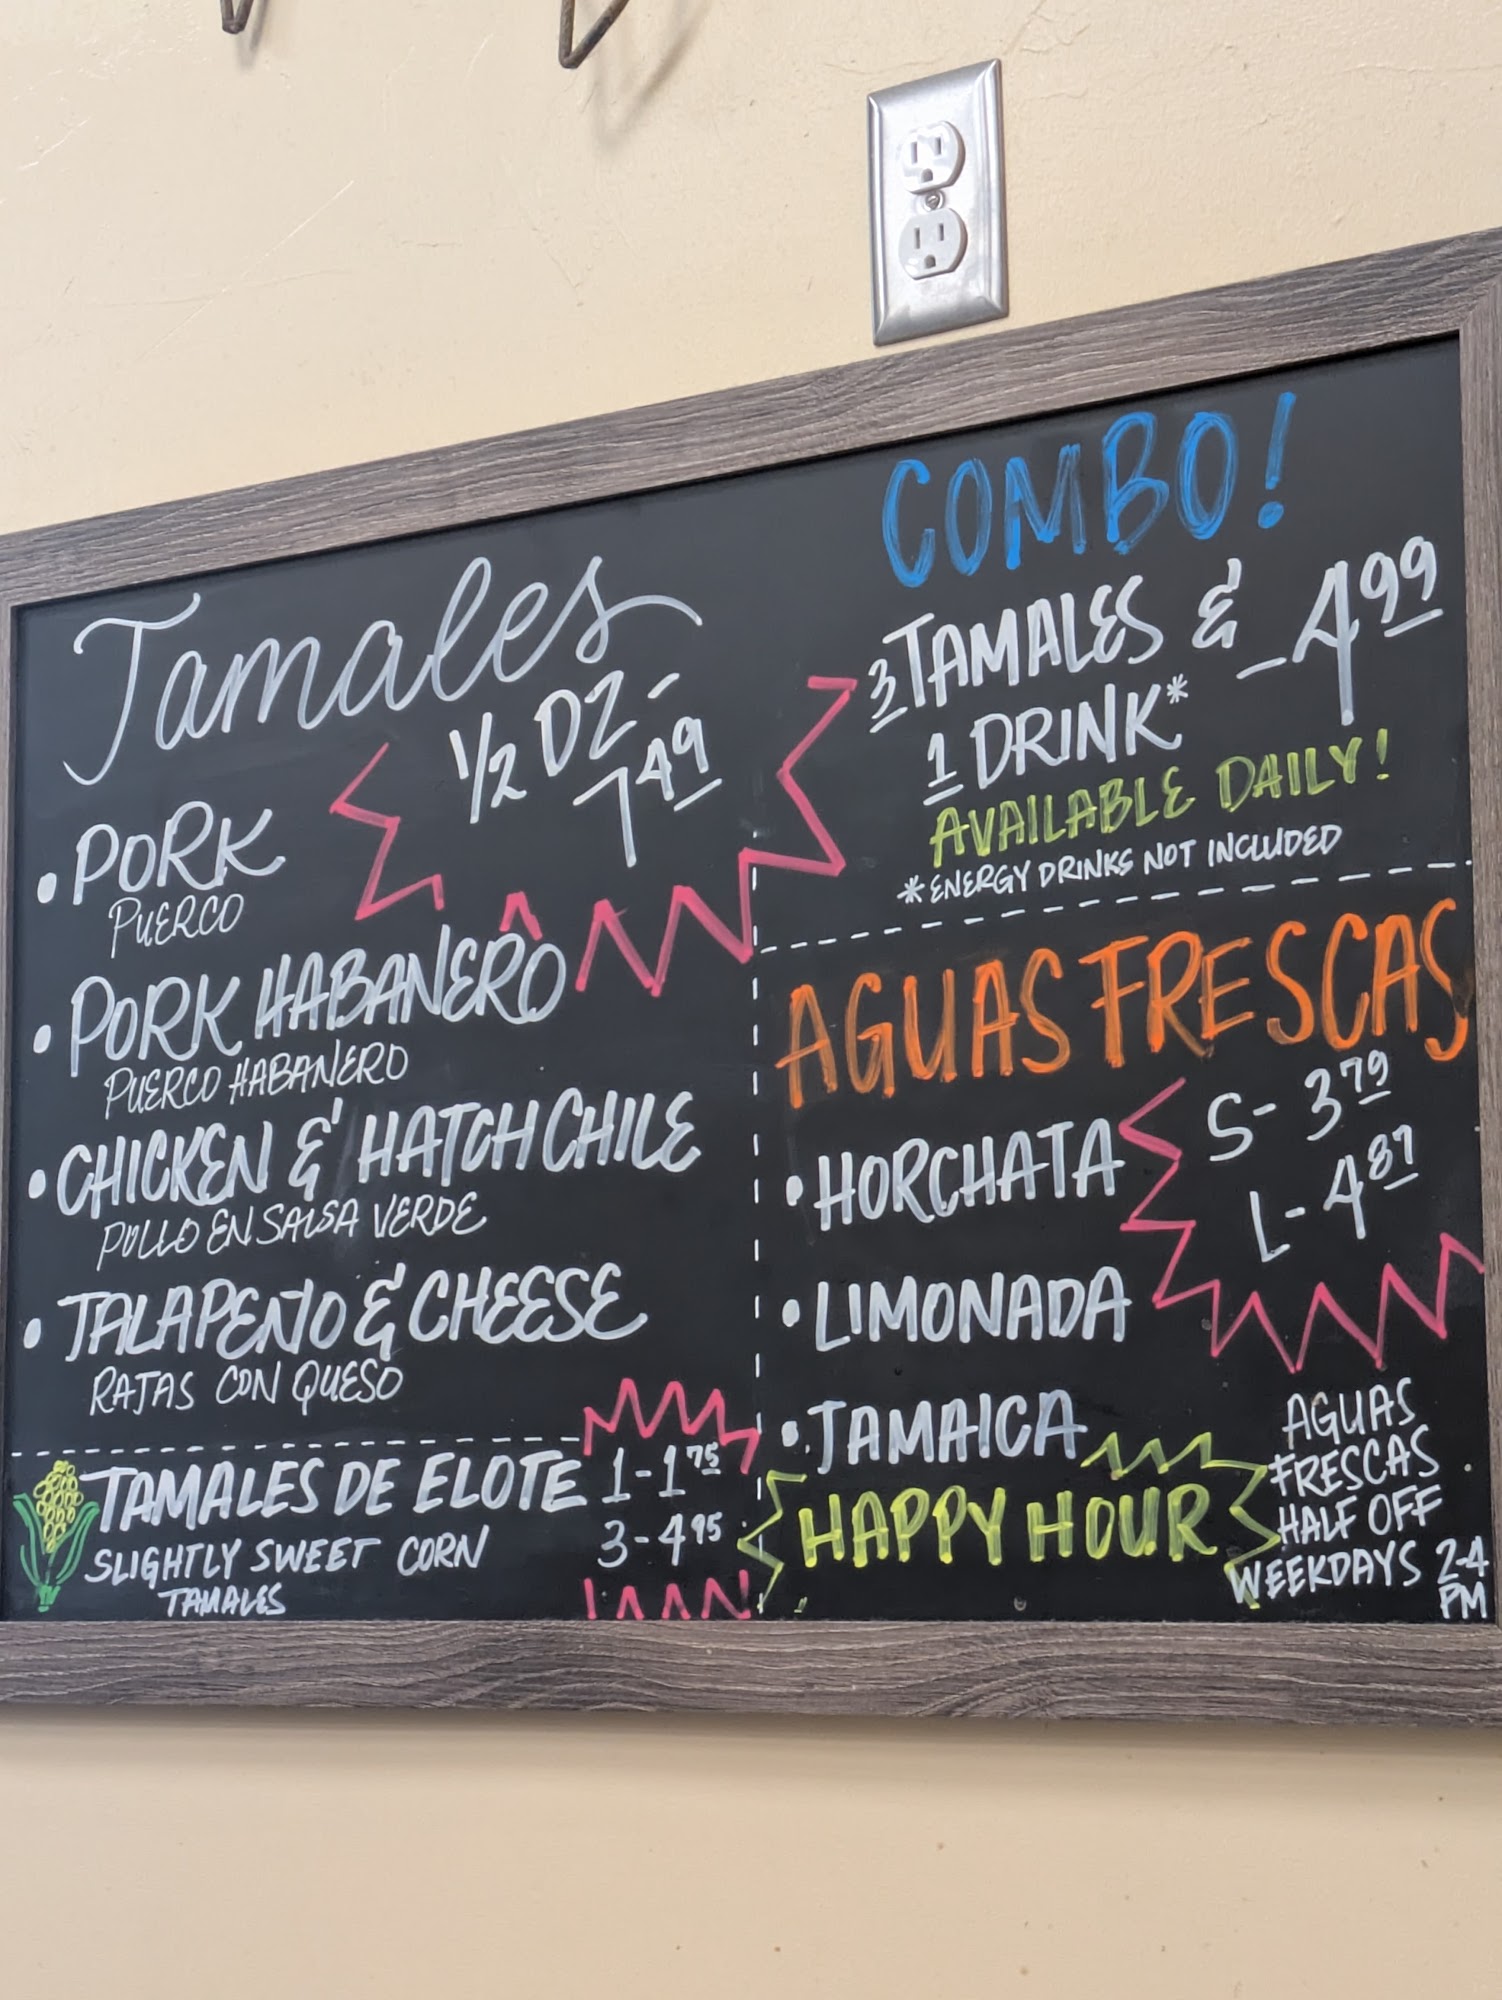 Tamales
1/2 DZ-
7.49
• PORK
PUERCO
• PORK HABANERO
PUERCO HABANERO
• CHICKEN & HATCH CHILE
POLLO EN SALSA VERDE
• JALAPEÑO & CHEESE
RAJAS CON QUESO
TAMALES DE ELOTE
SLIGHTLY SWEET CORN
TAMALES
1-1.75
3-4.95
COMBO!
3 TAMALES & - 4.99
1 DRINK*
AVAILABLE DAILY!
* ENERGY DRINKS NOT INCLUDED
AGUAS FRESCAS
S- 3.79
L- 4.87
• HORCHATA
• LIMONADA
• JAMAICA
HAPPY HOUR
AGUAS
FRESCAS
HALF OFF
WEEKDAYS 2-4
PM